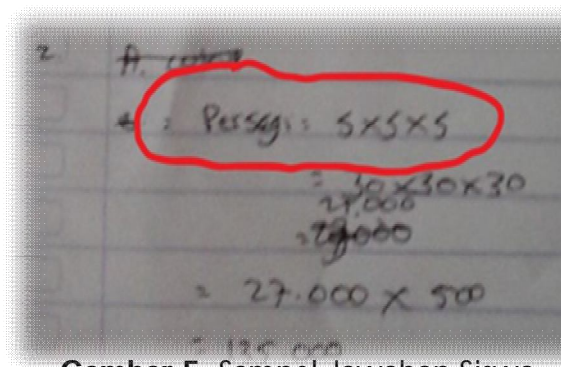 2
: Persegi = S x S x S
= 30 x 30 x 30
27.000
=
= 27.000 x 500
= 125.000
Gambar 5. Sampel Jawaban Siswa